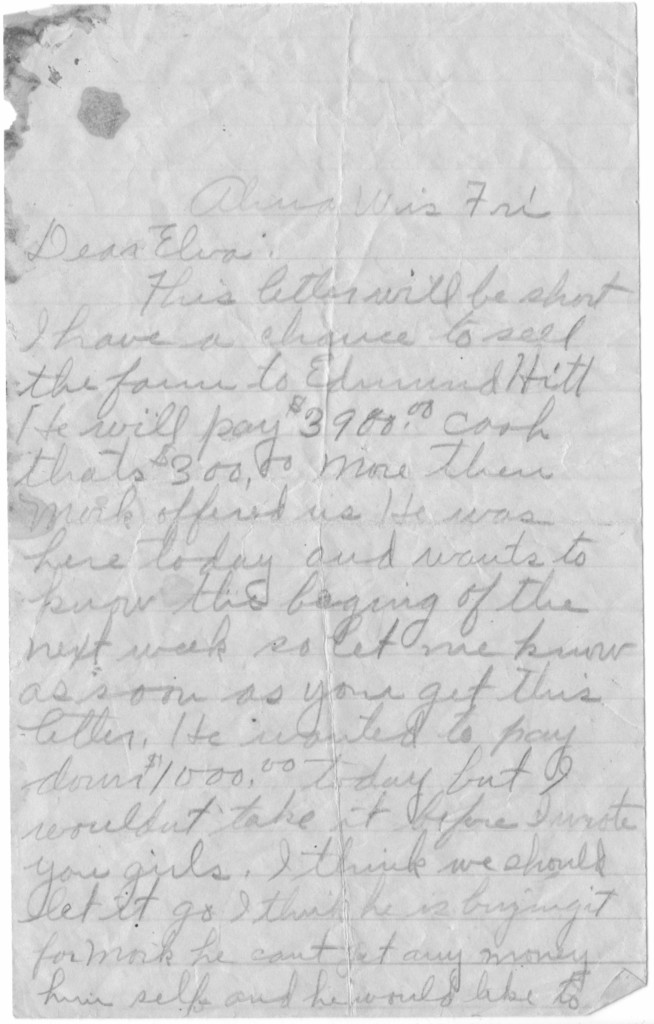 Alma Wis Fri
Dear Elva:
This letter will be short
I have a chance to sell
the farm to Edmund Hitt
He will pay $3900.00 cash
thats $300.00 more then
Mork offered us He was
here today and wants to
know the beging of the
next week so let me know
as soon as you get this
letter. He wanted to pay
down $1000.00 today but I
wouldnt take it before I wrote
you girls. I think we should
let it go I think he is buying it
for Mork he cant get any money
him self and he would like to